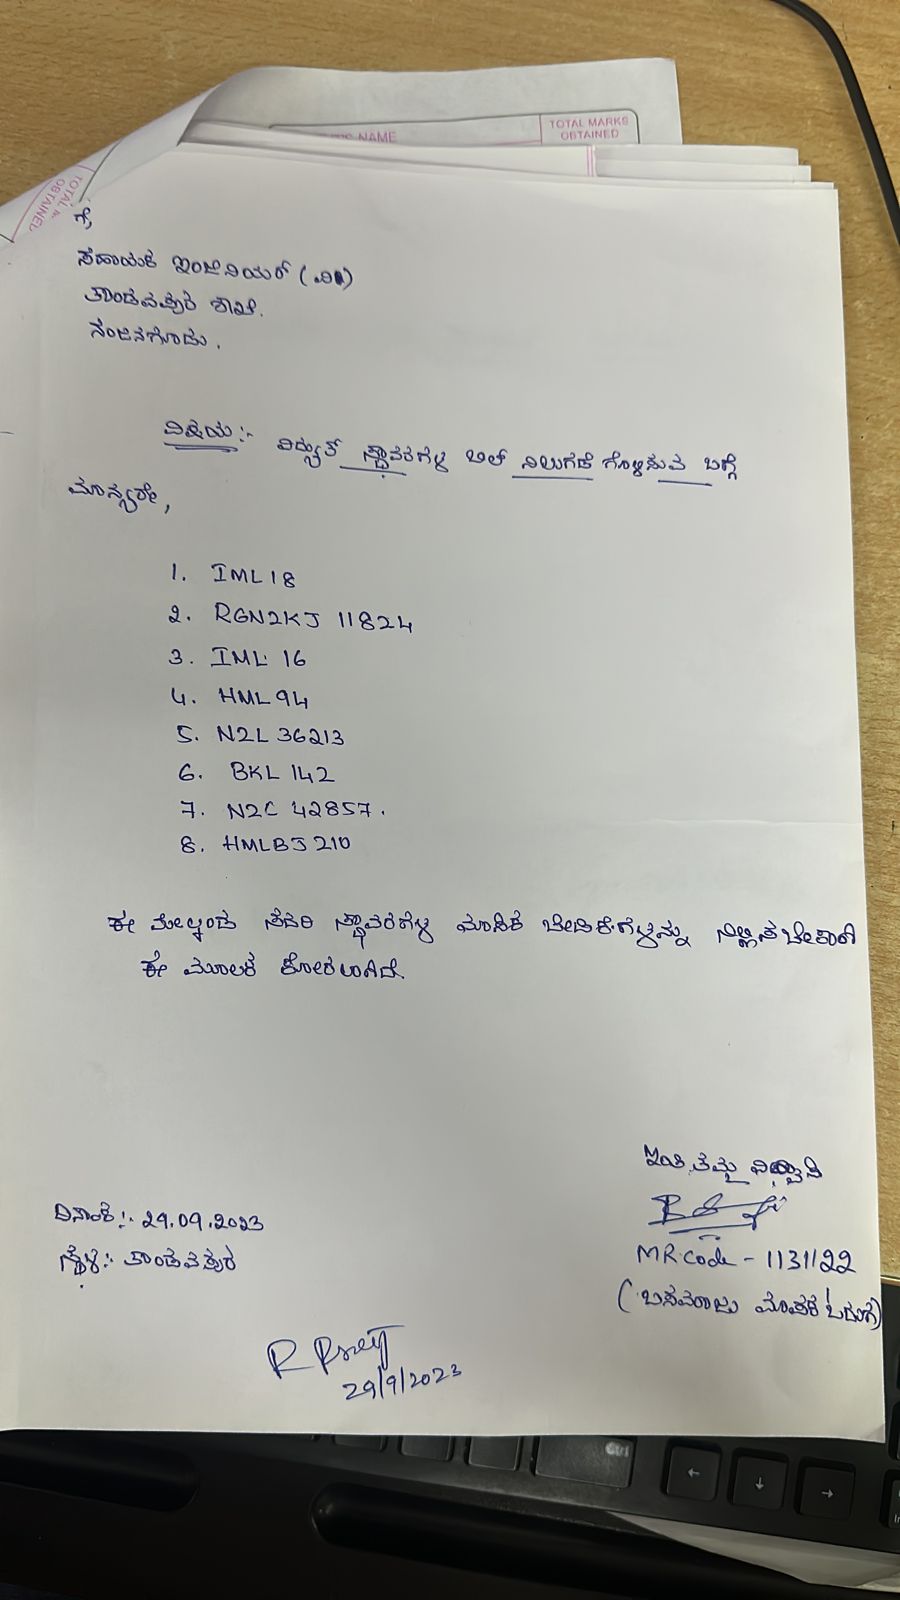 NAME
TOTAL MARKS
OBTAINED
ಗೆ,
ಸಹಾಯಕ ಇಂಜಿನಿಯರ್ (ವಿ)
ತಾಂಡವಪುರ ಶಾಖೆ.
ನಂಜನಗೂಡು.
ವಿಷಯ:- ವಿದ್ಯುತ್ ಸ್ಥಾವರಗಳ ಬಿಲ್ ನಿಲುಗಡೆ ಗೊಳಿಸುವ ಬಗ್ಗೆ
ಮಾನ್ಯರೇ,
1. IML18
2. RGN2KJ 11824
3. IML 16
4. HML94
5. N2L 36213
6. BKL 142
7. N2C 42857.
8. HMLBJ 210
ಈ ಮೇಲ್ಕಂಡ ಸದರಿ ಸ್ಥಾವರಗಳ ಮಾಸಿಕ ಬೇಡಿಕೆಗಳನ್ನು ನಿಲ್ಲಿಸಬೇಕಾಗಿ
ಈ ಮೂಲಕ ಕೋರಲಾಗಿದೆ.
ಇಂತಿ ತಮ್ಮ ವಿಶ್ವಾಸಿ
ದಿನಾಂಕ:- 29.09.2023
MR code - 1131122
ಸ್ಥಳ:- ತಾಂಡವಪುರ
(ಬಸವರಾಜು ಮಾಪಕ ಓದುಗ)
29/9/2023
Ctrl